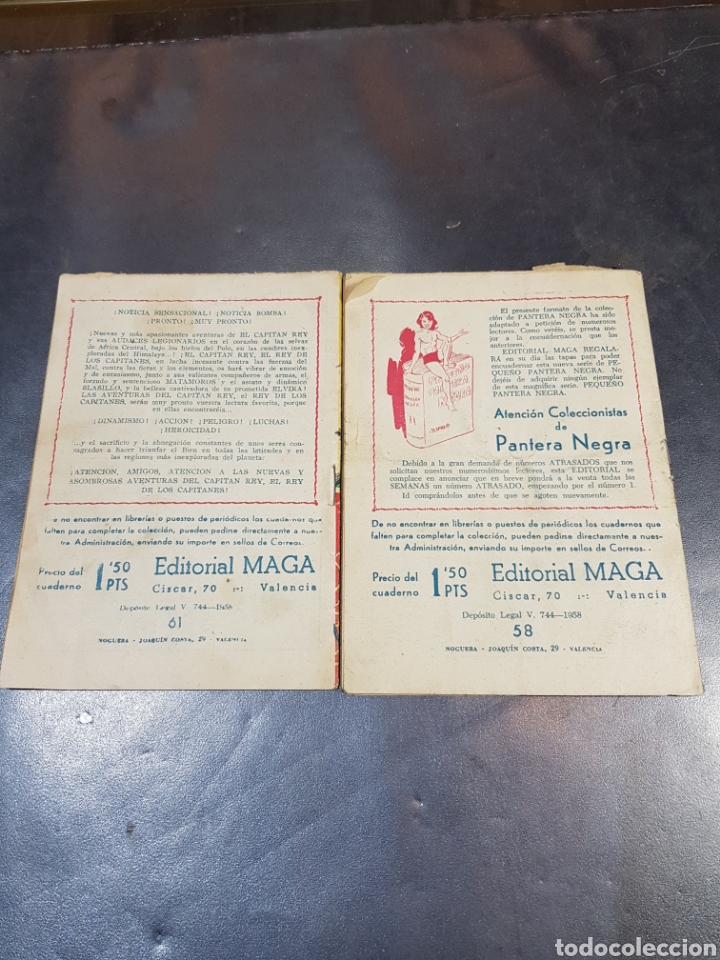 ¡NOTICIA SENSACIONAL! ¡NOTICIA BOMBA!
¡PRONTO! ¡MUY PRONTO!
¡Nuevas y más apasionantes aventuras de EL CAPITAN REY
y sus AUDACES LEGIONARIOS en el corazón de las selvas
de Africa Central, bajo los hielos del Polo, en las cumbres inex-
ploradas del Himalaya...! ¡EL CAPITAN REY, EL REY DE
LOS CAPITANES, en lucha incesante contra las fuerzas del
Mal, contra las fieras y los elementos, os hará vibrar de emoción
y de entusiasmo, junto a sus valientes compañeros de armas, el
forzudo y sentencioso MATAMOROS y el astuto y dinámico
BLASILLO, y la belleza cautivadora de su prometida ELVIRA!
LAS AVENTURAS DEL CAPITAN REY, el REY DE LOS
CAPITANES, serán muy pronto vuestra lectura favorita, porque
en ellas encontraréis...
¡DINAMISMO! ¡ACCION! ¡PELIGRO! ¡LUCHAS!
¡HEROICIDAD!
...y el sacrificio y la abnegación constantes de unos seres con-
sagrados a hacer triunfar el Bien en todas las latitudes y en
las regiones más inexploradas del planeta:
¡ATENCION, AMIGOS, ATENCION A LAS NUEVAS Y
ASOMBROSAS AVENTURAS DEL CAPITAN REY, EL REY
DE LOS CAPITANES!
De no encontrar en librerías o puestos de periódicos los cuadernos que
falten para completar la colección, pueden pedirse directamente a nues-
tra Administración, enviando su importe en sellos de Correos..
Precio del
cuaderno
1'50
PTS
Editorial MAGA
Ciscar, 70 :-: Valencia
Depósito Legal V. 744—1958
61
NOGUERA - JOAQUÍN COSTA, 29 - VALENCIA
El presente formato de la colec-
ción de PANTERA NEGRA ha sido
adaptado a petición de numerosos
lectores. Como veréis, se presta mejor
a la encuadernación que los
anteriores.
EDITORIAL MAGA REGALA-
RÁ en su día las tapas para poder
encuadernar esta nueva serie de PE-
QUEÑO PANTERA NEGRA. No
dejéis de adquirir ningún ejemplar
de esta magnífica serie. PEQUEÑO
PANTERA NEGRA.
Atención Coleccionistas
de
Pantera Negra
Debido a la gran demanda de números ATRASADOS que nos
solicitan nuestros numerosísimos lectores, esta EDITORIAL se
complace en anunciar que en breve pondrá a la venta todas las
SEMANAS un número ATRASADO, empezando por el número 1.
Id comprándolos antes de que se agoten nuevamente.
De no encontrar en librerías o puestos de periódicos los cuadernos que
falten para completar la colección, pueden pedirse directamente a nues-
tra Administración, enviando su importe en sellos de Correos. .
Precio del
cuaderno
1'50
PTS
Editorial MAGA
Ciscar, 70 :-: Valencia
Depósito Legal V. 744—1958
58
NOGUERA - JOAQUÍN COSTA, 29 - VALENCIA
todocoleccion